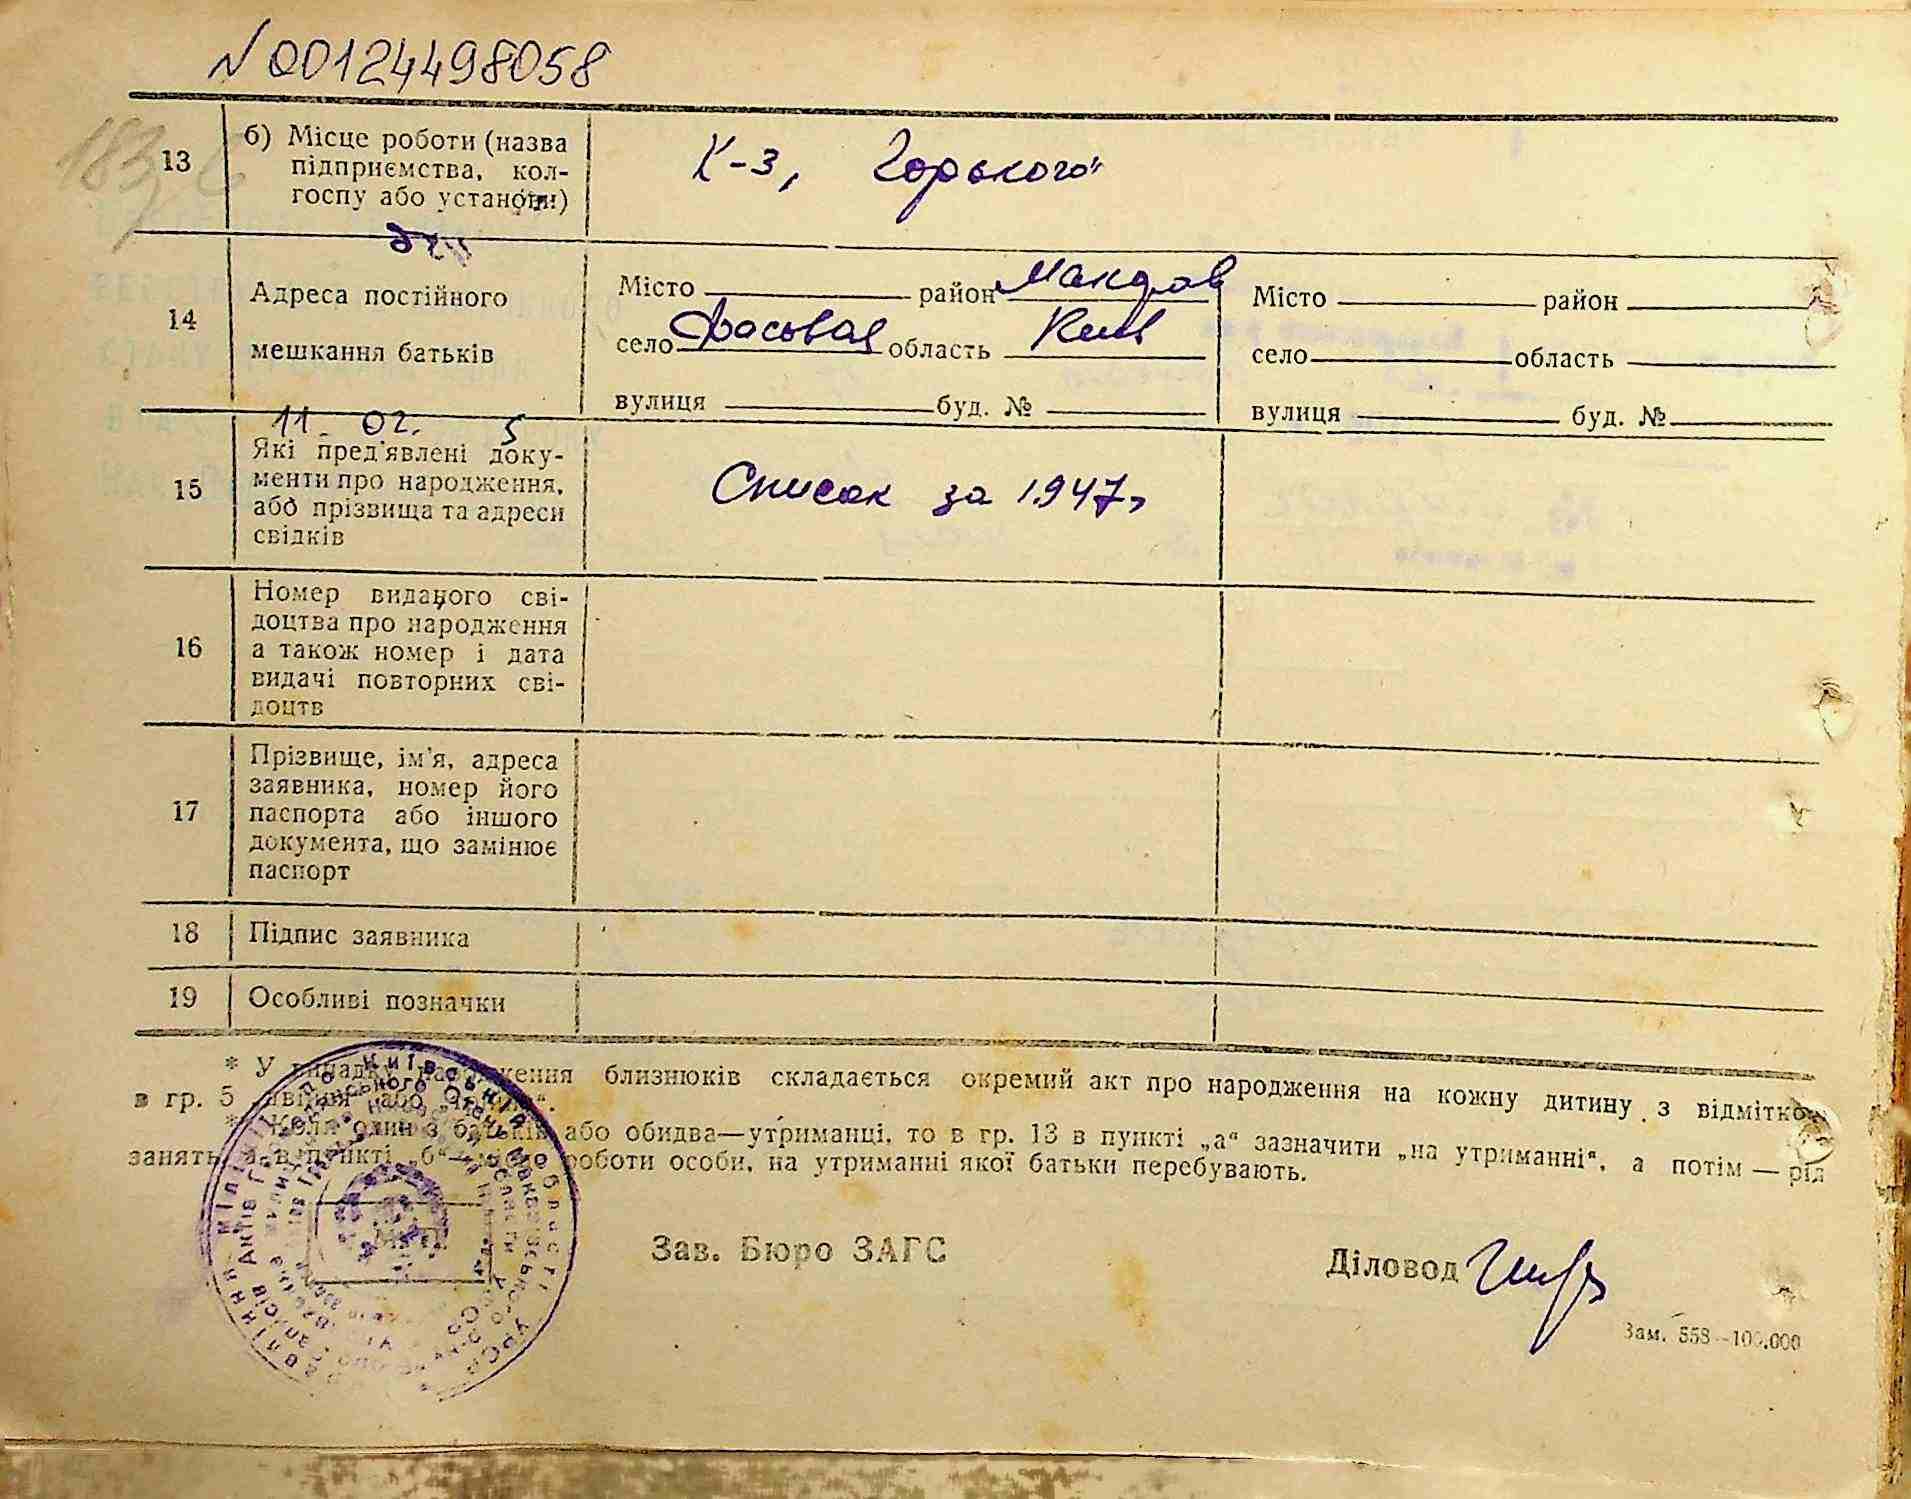 N 00124498058
13
б) Місце роботи (назва
підприємства, кол-
госпу або установи)
К-з, Горького"
14
Адреса постійного
мешкання батьків
Місто район Макаров
село Фасовая область Київ
вулиця буд. №
Місто район
село область
вулиця буд. №
11. 02. 5
15
Які пред'явлені доку-
менти про народження,
або прізвища та адреси
свідків
Список за 1947г
16
Номер виданого сві-
доцтва про народження
а також номер і дата
видачі повторних сві-
доцтв
17
Прізвище, ім'я, адреса
заявника, номер його
паспорта або іншого
документа, що замінює
паспорт
18
Підпис заявника
19
Особливі позначки
* У випадку народження близнюків складається окремий акт про народження на кожну дитину з відміткою
в гр. 5 „двійня" або
* Коли один з батьків або обидва—утриманці, то в гр. 13 в пункті „а" зазначити „на утриманні", а потім — рід
занять, а в пункті „б"—місце роботи особи, на утриманні якої батьки перебувають.
Зав. Бюро ЗАГС
Діловод
Зам. 558—100.000